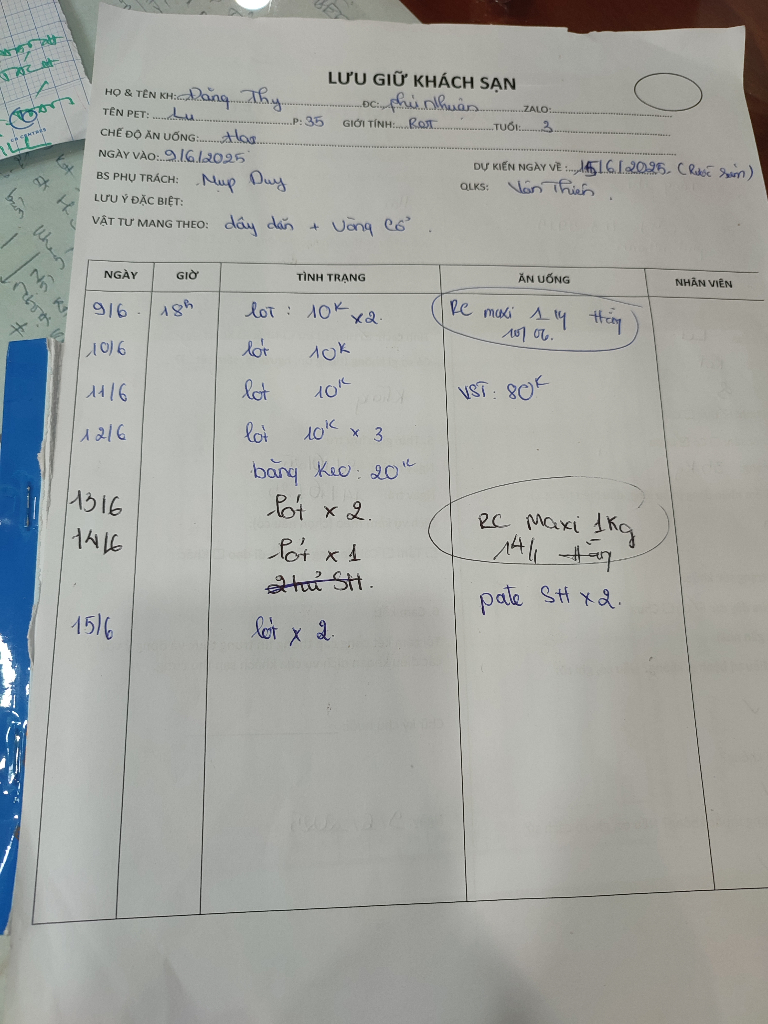 LƯU GIỮ KHÁCH SẠN
HỌ & TÊN KH: Đăng Thy ĐC: phú Nhuận ZALO:
TÊN PET: Lu P: 35 GIỚI TÍNH: TUỔI: 3
CHẾ ĐỘ ĂN UỐNG:
NGÀY VÀO: 9/6/2025 DỰ KIẾN NGÀY VỀ: 15/6/2025. (Rước sớm)
BS PHỤ TRÁCH: Mụp Duy QLKS: Văn Thiên.
LƯU Ý ĐẶC BIỆT:
VẬT TƯ MANG THEO: dây dắn + Vòng Cổ.
NGÀY GIỜ TÌNH TRẠNG ĂN UỐNG NHÂN VIÊN
9/6 18h lót: 10K x2 RC maxi 1 ký Hằng
10/06.
10/6 lót 10K
11/6 lót 10K VST: 80K
12/6 lót 10K x 3
băng Keo: 20K
13/6 lót x 2. RC Maxi 1Kg
14/6 lót x 1 14/ Hằng
2 hủ SH. pate SH x 2.
15/6 lót x 2.